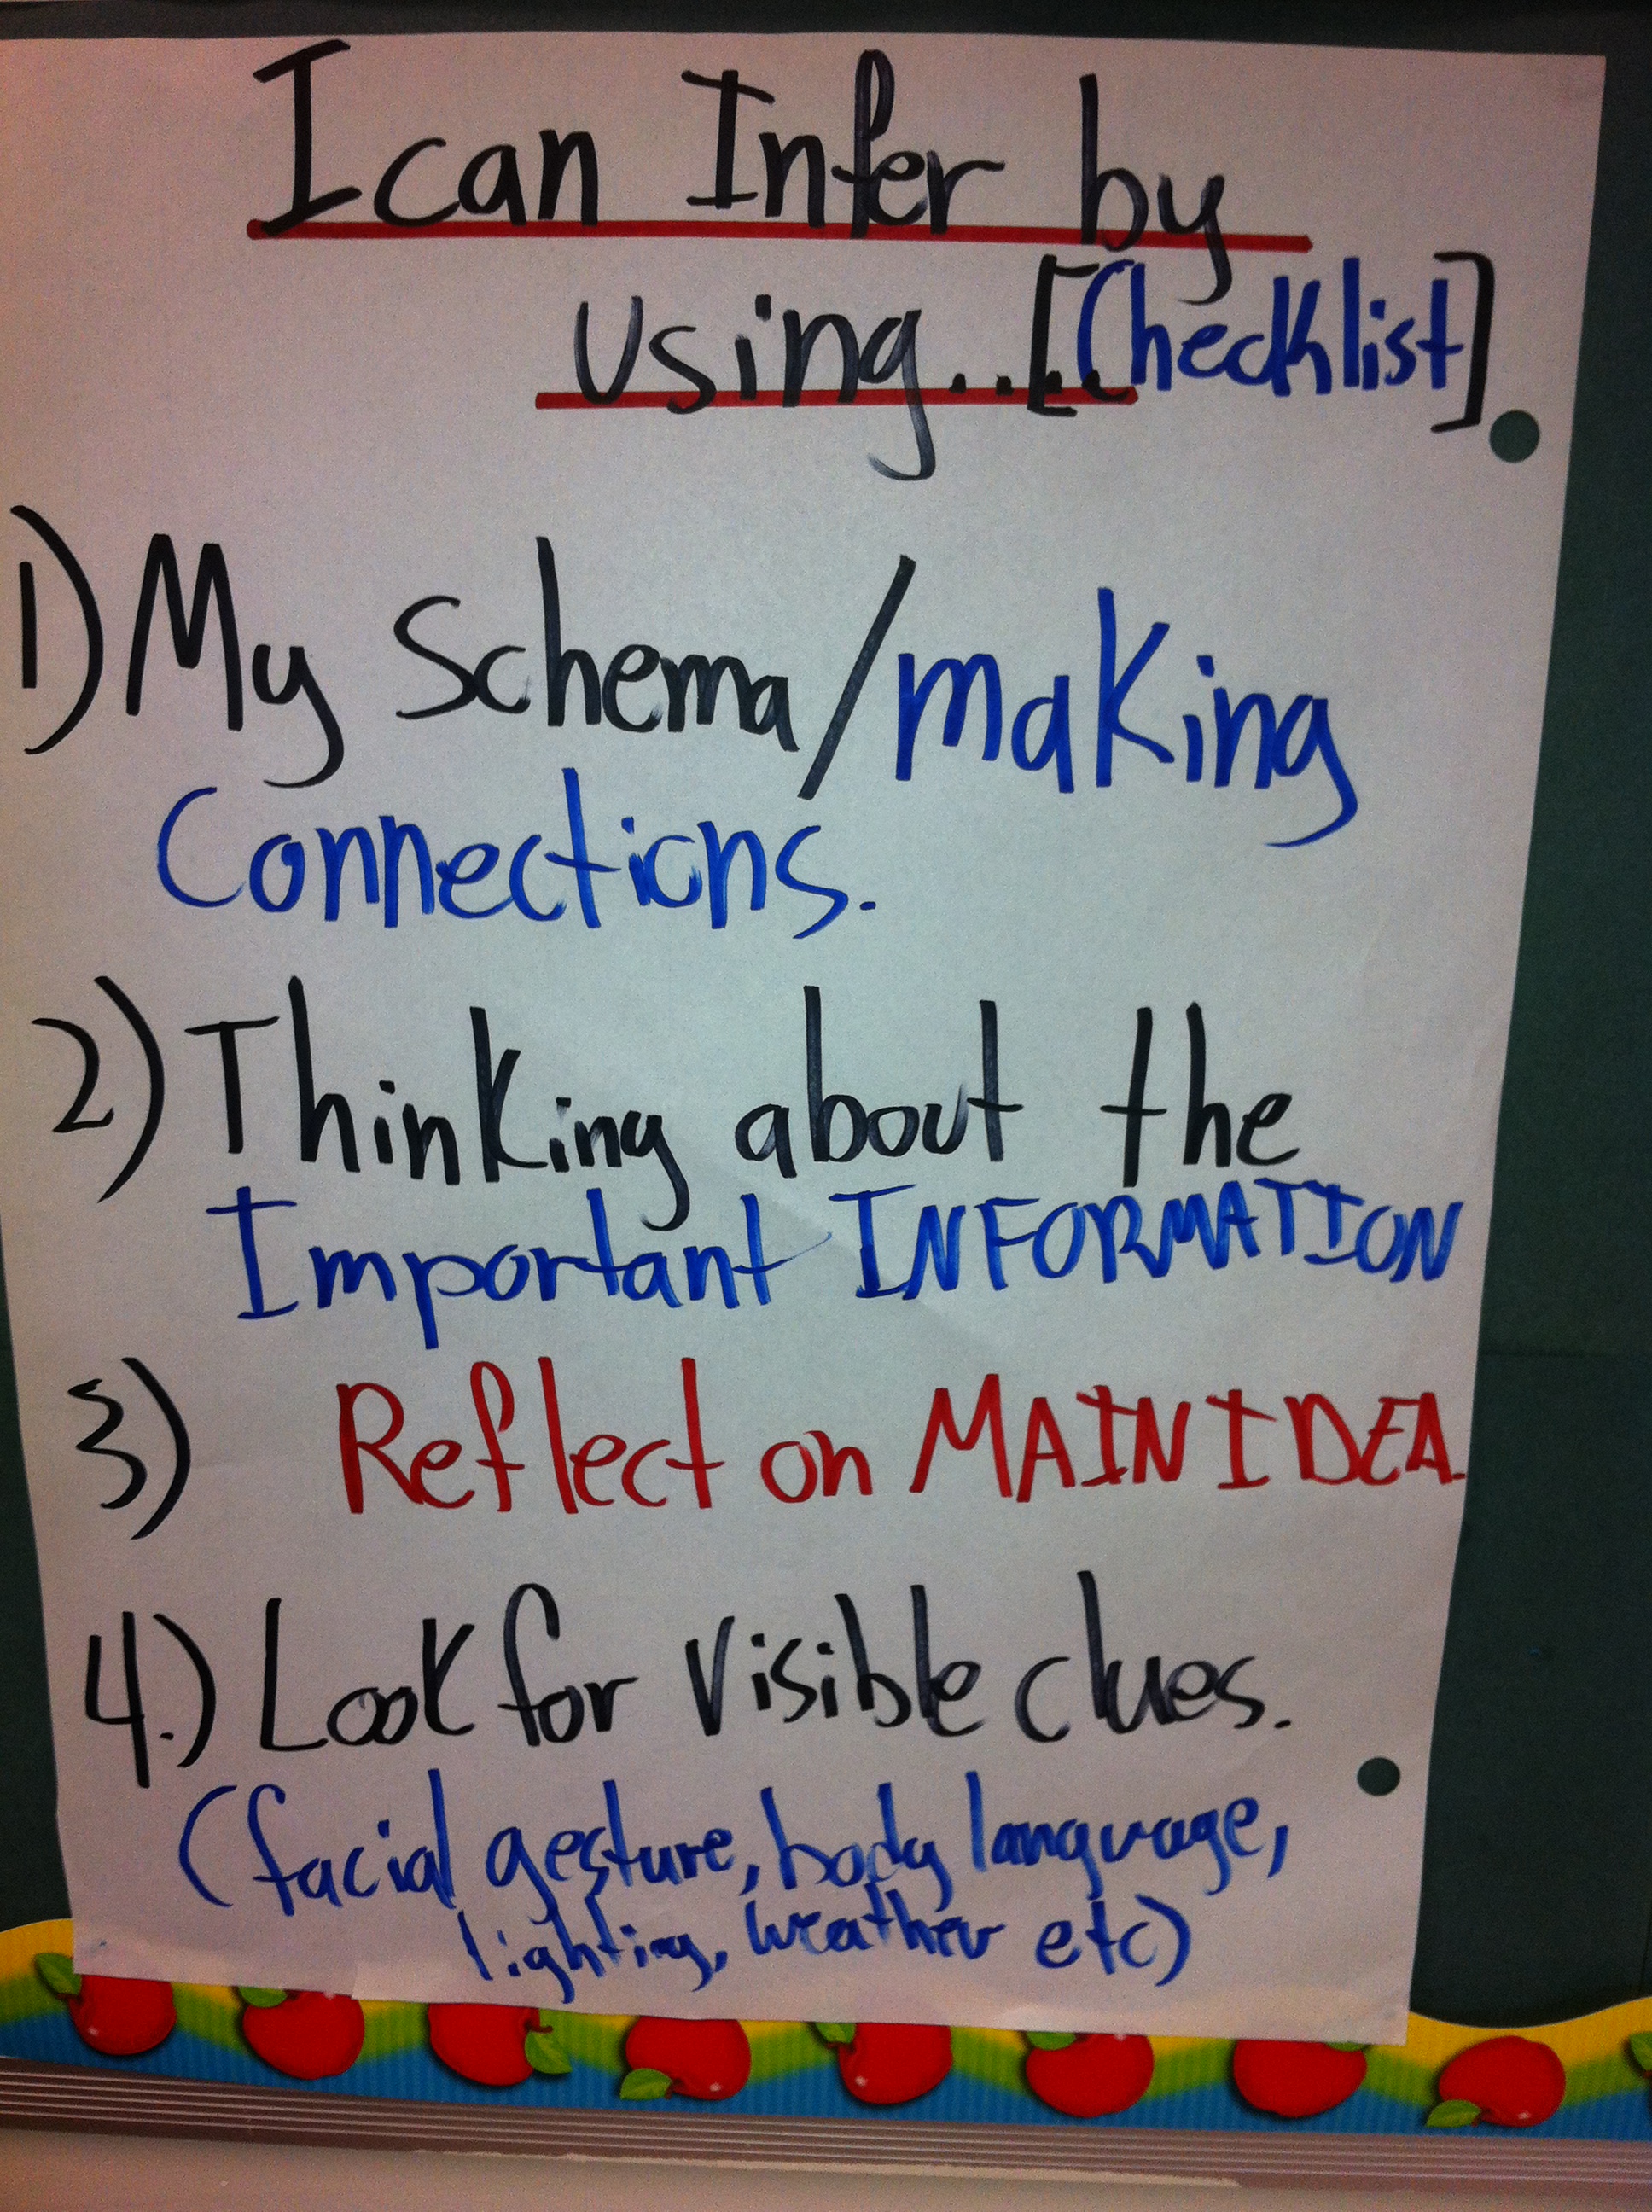 I can Infer by
using..... [Checklist]
1) My Schema/making
Connections.
2) Thinking about the
Important INFORMATION
3) Reflect on MAIN IDEA.
4.) Look for visible clues.
(facial gesture, body language,
lighting, weather etc)